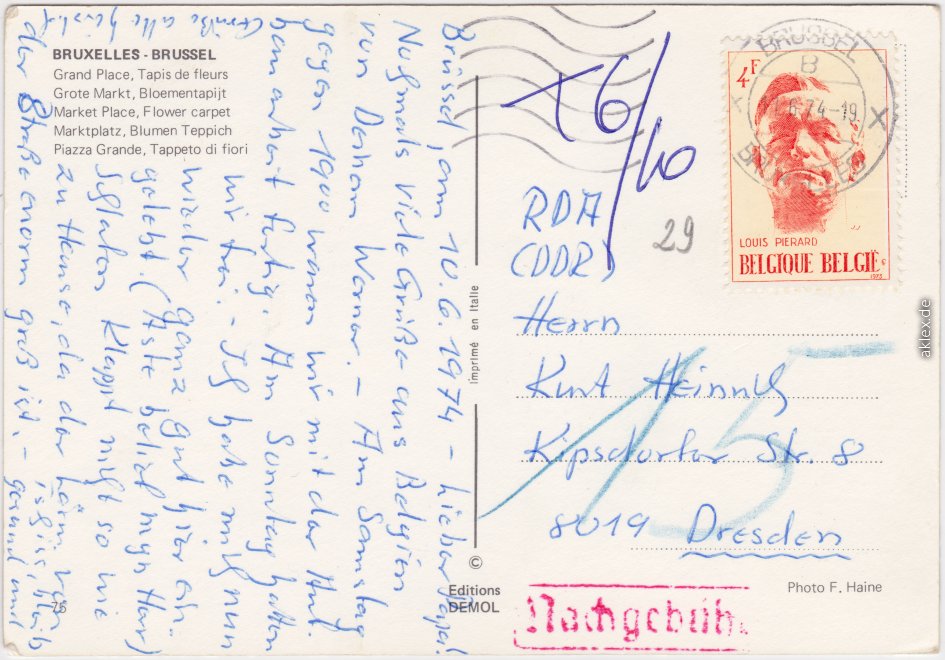 BRUXELLES - BRUSSEL
Grand Place, Tapis de fleurs
Grote Markt, Bloementapijt
Market Place, Flower carpet
Marktplatz, Blumen Teppich
Piazza Grande, Tappeto di fiori
Brüssel, am 10.6.1974 – Lieber Papa!
Nochmals viele Grüße aus Belgien
von Deinem Werner. – Am Samstag
gegen 1900 waren wir mit der Auf-
bauarbeit fertig. Am Sonntag hatten
wir frei. – Ich habe mich nun
wieder ganz gut hier ein-
gelebt. (Aste belief myn Har)
Schlafen klappt nicht so wie
zu Hause, da der Lärm von
der Straße enorm groß ist. –
gesund und
Grüße alle herzlich
75
Imprimé en Italie
©
Editions
DEMOL
T6/40
29
RDA
(DDR)
Herrn
Kurt Heinrich
Kipsdorfer Str. 8
8019 Dresden
15
Nachgebüh
Photo F. Haine
BRUSSEL
B
6-74-19
X
BRUXELLES
4F
LOUIS PIERARD
BELGIQUE BELGIË
1973
aklex.de